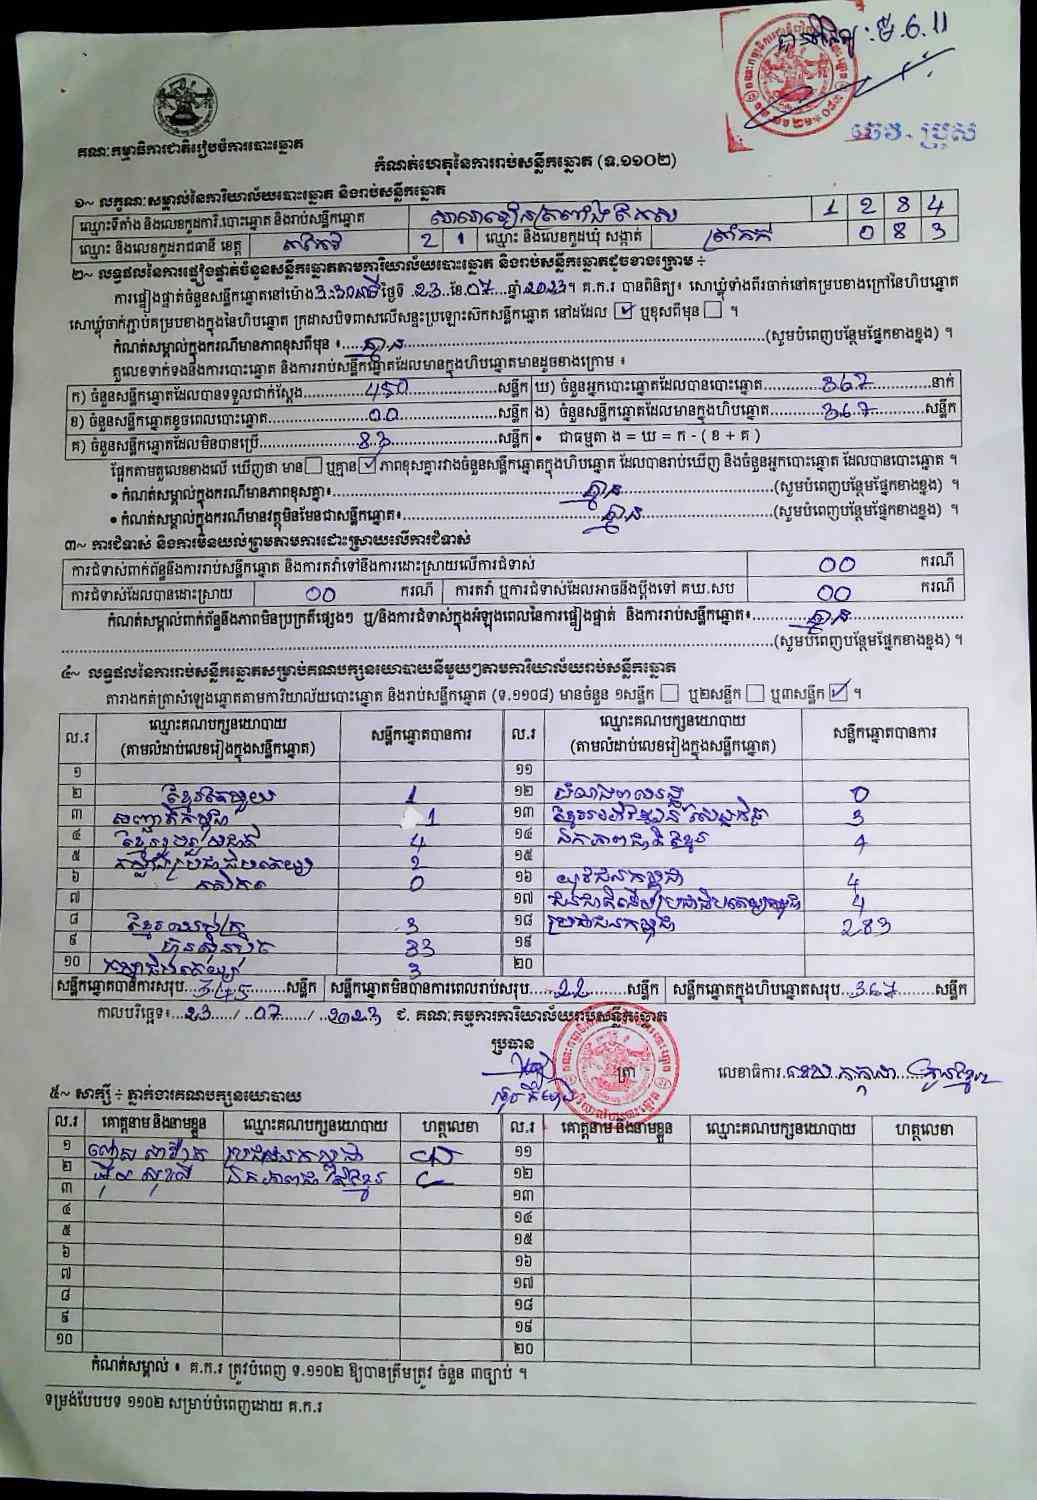 ពិនិត្យ: ម៉.6.11
គណៈកម្មាធិការជាតិរៀបចំការបោះឆ្នោត
កំណត់ហេតុនៃការរាប់សន្លឹកឆ្នោត (ទ.១១០២)
១~ លក្ខណៈសម្គាល់នៃការិយាល័យបោះឆ្នោត និងរាប់សន្លឹកឆ្នោត
ឈ្មោះទីតាំង និងលេខកូដការិ.បោះឆ្នោត និងរាប់សន្លឹកឆ្នោត 1 2 8 4
ឈ្មោះ និងលេខកូដរាជធានី ខេត្ត តាកែវ 2 1 ឈ្មោះ និងលេខកូដឃុំ សង្កាត់ 0 8 3
២~ លទ្ធផលនៃការផ្ទៀងផ្ទាត់ចំនួនសន្លឹកឆ្នោតតាមការិយាល័យបោះឆ្នោត និងរាប់សន្លឹកឆ្នោតដូចខាងក្រោម ៖
ការផ្ទៀងផ្ទាត់ចំនួនសន្លឹកឆ្នោតនៅម៉ោង 3:30នាទី ថ្ងៃទី 23 ខែ 07 ឆ្នាំ 2023។ គ.ក.រ បានពិនិត្យ៖ សោឃ្លុំទាំងពីរចាក់នៅគម្របខាងក្រៅនៃហិបឆ្នោត
សោឃ្លុំចាក់ភ្ជាប់គម្របខាងក្នុងនៃហិបឆ្នោត ក្រដាសបិទពាសលើសន្ទះប្រឡោះសិកសន្លឹកឆ្នោត នៅដដែល ☑ ឬខុសពីមុន ☐ ។
កំណត់សម្គាល់ក្នុងករណីមានភាពខុសពីមុន ៖ គ្មាន (សូមបំពេញបន្ថែមផ្នែកខាងខ្នង) ។
តួលេខទាក់ទងនឹងការបោះឆ្នោត និងការរាប់សន្លឹកឆ្នោតដែលមានក្នុងហិបឆ្នោតមានដូចខាងក្រោម ៖
ក) ចំនួនសន្លឹកឆ្នោតដែលបានទទួលជាក់ស្តែង 450 សន្លឹក ឃ) ចំនួនអ្នកបោះឆ្នោតដែលបានបោះឆ្នោត 367 នាក់
ខ) ចំនួនសន្លឹកឆ្នោតខូចពេលបោះឆ្នោត 00 សន្លឹក ង) ចំនួនសន្លឹកឆ្នោតដែលមានក្នុងហិបឆ្នោត 367 សន្លឹក
គ) ចំនួនសន្លឹកឆ្នោតដែលមិនបានប្រើ 83 សន្លឹក • ជាធម្មតា ង = ឃ = ក - ( ខ + គ )
ផ្អែកតាមតួលេខខាងលើ ឃើញថា មាន ☐ ឬគ្មាន ☑ ភាពខុសគ្នារវាងចំនួនសន្លឹកឆ្នោតក្នុងហិបឆ្នោត ដែលបានរាប់ឃើញ និងចំនួនអ្នកបោះឆ្នោត ដែលបានបោះឆ្នោត ។
• កំណត់សម្គាល់ក្នុងករណីមានភាពខុសគ្នា៖ គ្មាន (សូមបំពេញបន្ថែមផ្នែកខាងខ្នង) ។
• កំណត់សម្គាល់ក្នុងករណីមានវត្ថុមិនមែនជាសន្លឹកឆ្នោត៖ គ្មាន (សូមបំពេញបន្ថែមផ្នែកខាងខ្នង) ។
៣~ ការជំទាស់ និងការមិនយល់ព្រមតាមការដោះស្រាយលើការជំទាស់
ការជំទាស់ពាក់ព័ន្ធនឹងការរាប់សន្លឹកឆ្នោត និងការតវ៉ាទៅនឹងការដោះស្រាយលើការជំទាស់ 00 ករណី
ការជំទាស់ដែលបានដោះស្រាយ 00 ករណី ការតវ៉ា ឬការជំទាស់ដែលអាចនឹងប្តឹងទៅ គឃ.សប 00 ករណី
កំណត់សម្គាល់ពាក់ព័ន្ធនឹងភាពមិនប្រក្រតីផ្សេងៗ ឬ/និងការជំទាស់ក្នុងអំឡុងពេលនៃការផ្ទៀងផ្ទាត់ និងការរាប់សន្លឹកឆ្នោត៖ គ្មាន
(សូមបំពេញបន្ថែមផ្នែកខាងខ្នង) ។
៤~ លទ្ធផលនៃការរាប់សន្លឹកឆ្នោតសម្រាប់គណបក្សនយោបាយនីមួយៗតាមការិយាល័យរាប់សន្លឹកឆ្នោត
តារាងកត់ត្រាសំឡេងឆ្នោតតាមការិយាល័យបោះឆ្នោត និងរាប់សន្លឹកឆ្នោត (ទ.១១០៨) មានចំនួន ១សន្លឹក ☐ ឬ២សន្លឹក ☐ ឬ៣សន្លឹក ☑ ។
ល.រ ឈ្មោះគណបក្សនយោបាយ (តាមលំដាប់លេខរៀងក្នុងសន្លឹកឆ្នោត) សន្លឹកឆ្នោតបានការ ល.រ ឈ្មោះគណបក្សនយោបាយ (តាមលំដាប់លេខរៀងក្នុងសន្លឹកឆ្នោត) សន្លឹកឆ្នោតបានការ
១ ១១
២ ខ្មែរតែមួយ 1 ១២ 0
៣ សញ្ជាតិកម្ពុជា 1 ១៣ 3
៤ ខ្មែររួបរួមជាតិ 4 ១៤ ឯកភាពជាតិខ្មែរ
៥ 2 ១៥
៦ កសិករ 0 ១៦ យុវជនកម្ពុជា 4
៧ ១៧ 4
៨ 3 ១៨ ប្រជាជនកម្ពុជា 283
៩ ហ្វ៊ុនស៊ិនប៉ិច 33 ១៩
១០ 3 ២០
សន្លឹកឆ្នោតបានការសរុប 345 សន្លឹក សន្លឹកឆ្នោតមិនបានការពេលរាប់សរុប 22 សន្លឹក សន្លឹកឆ្នោតក្នុងហិបឆ្នោតសរុប 367 សន្លឹក
កាលបរិច្ឆេទ៖ 23 / 07 / 2023 ជ. គណៈកម្មការការិយាល័យរាប់សន្លឹកឆ្នោត
ប្រធាន
ត្រា
លេខាធិការ
៥~ សាក្សី ៖ ភ្នាក់ងារគណបក្សនយោបាយ
ល.រ គោត្តនាម និងនាមខ្លួន ឈ្មោះគណបក្សនយោបាយ ហត្ថលេខា ល.រ គោត្តនាម និងនាមខ្លួន ឈ្មោះគណបក្សនយោបាយ ហត្ថលេខា
១ ប្រជាជនកម្ពុជា ១១
២ ឯកភាពជាតិខ្មែរ ១២
៣ ១៣
៤ ១៤
៥ ១៥
៦ ១៦
៧ ១៧
៨ ១៨
៩ ១៩
១០ ២០
កំណត់សម្គាល់ ៖ គ.ក.រ ត្រូវបំពេញ ទ.១១០២ ឱ្យបានត្រឹមត្រូវ ចំនួន ៣ច្បាប់ ។
ទម្រង់បែបបទ ១១០២ សម្រាប់បំពេញដោយ គ.ក.រ